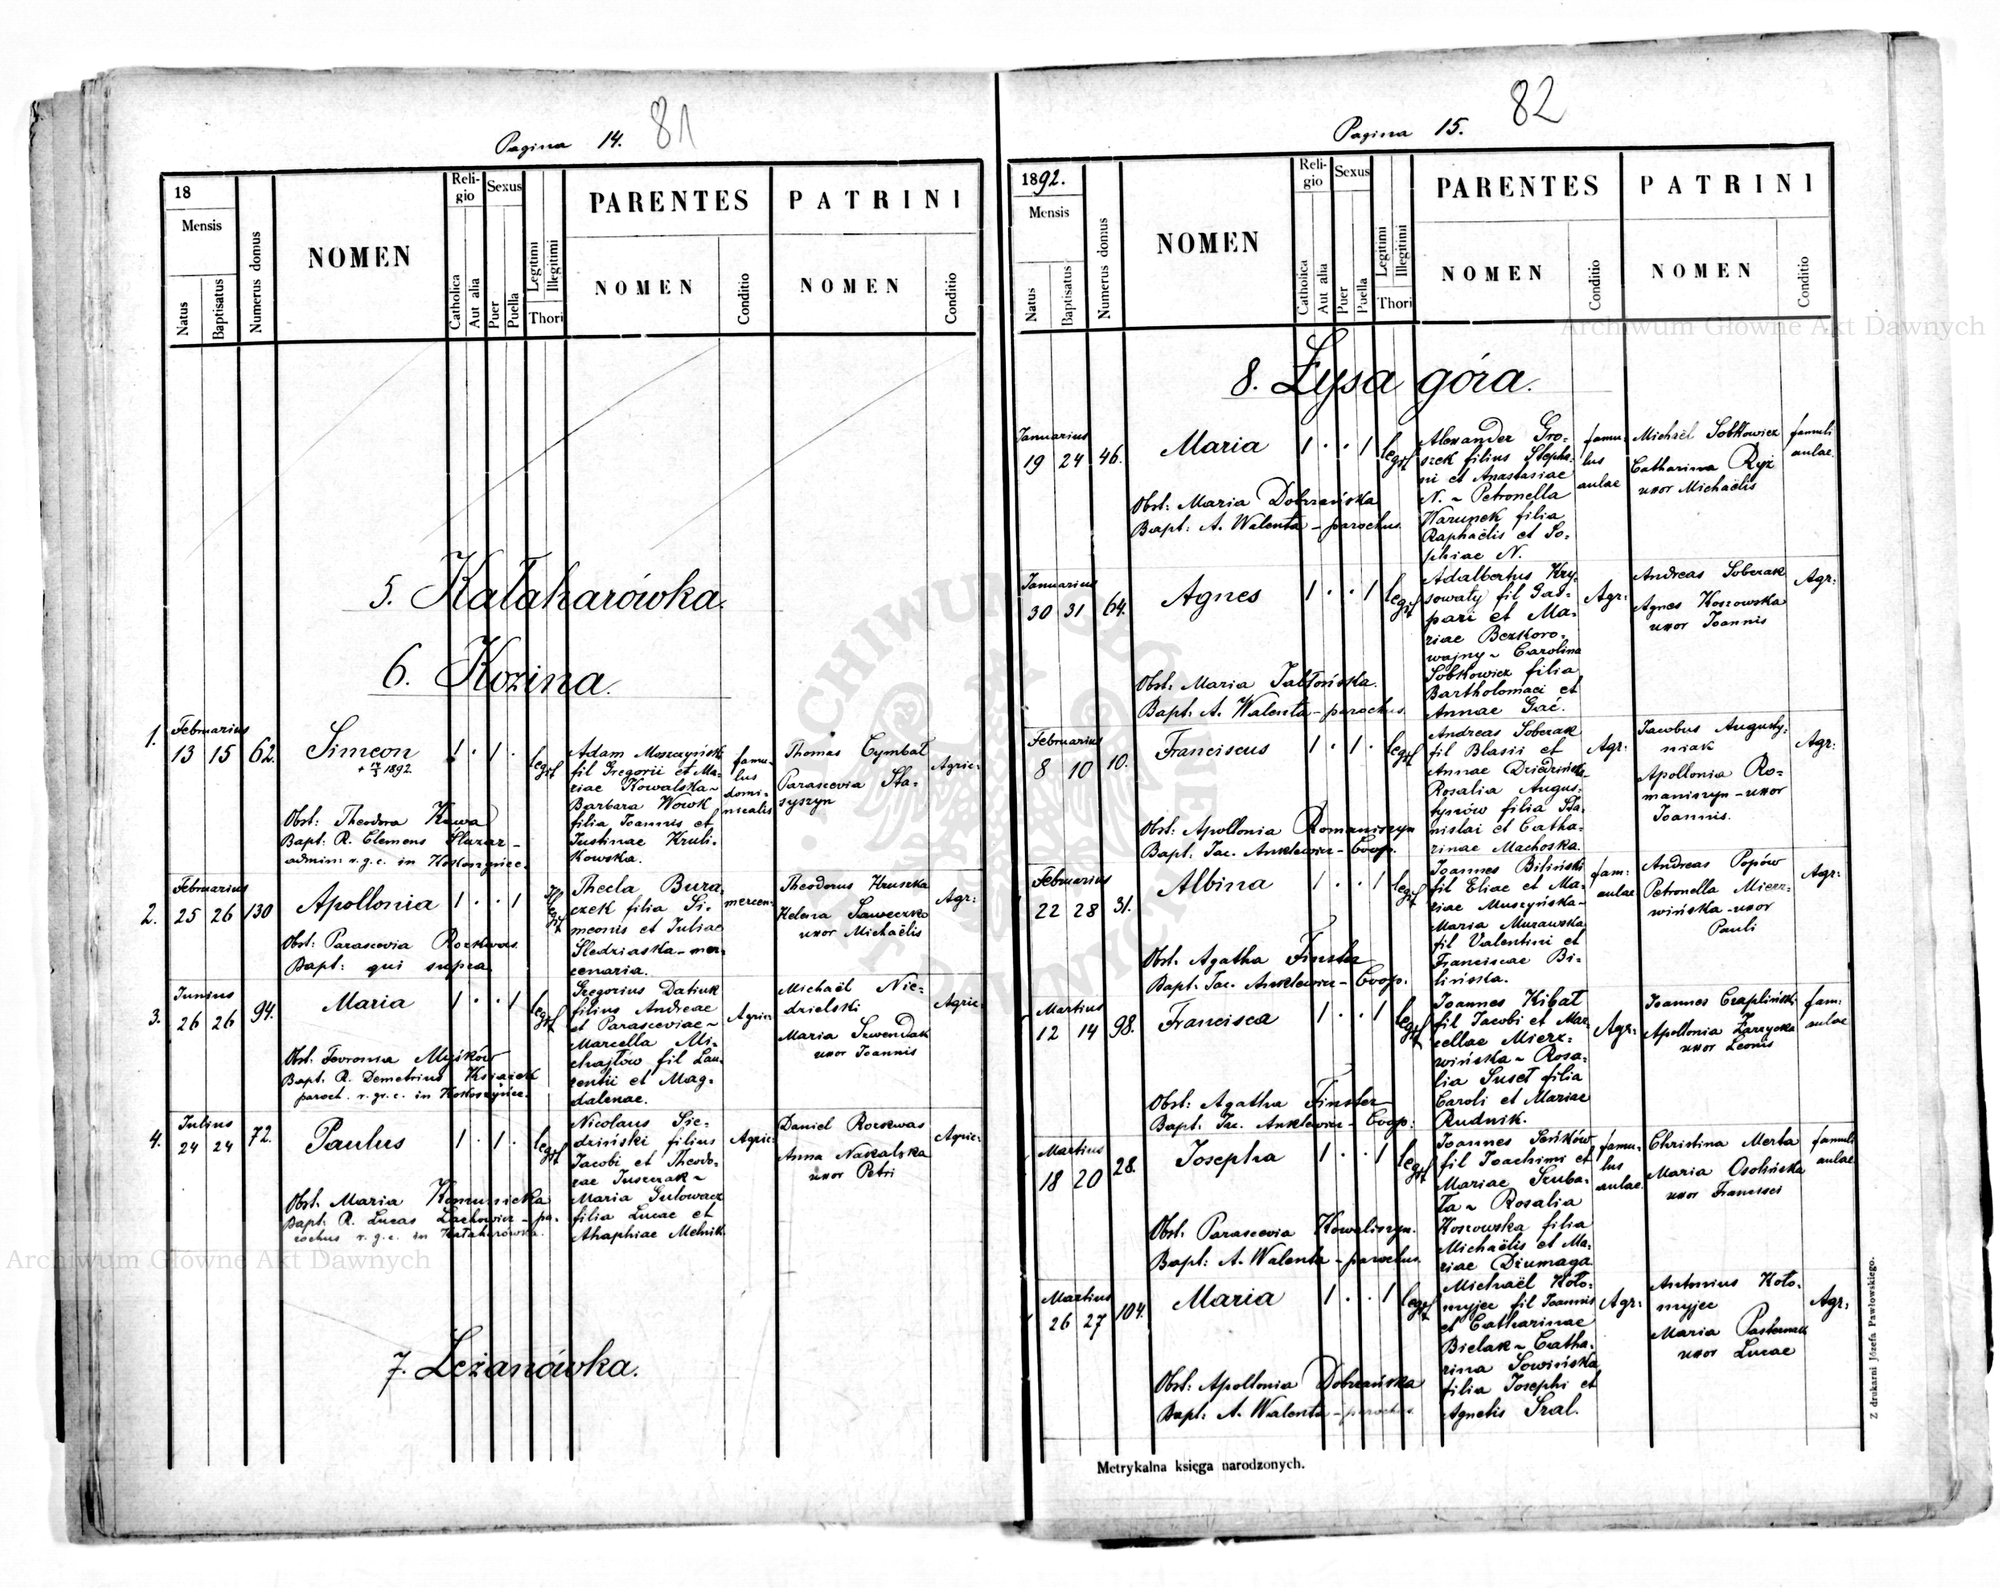 Pagina 14.
81
18
Mensis
Natus
Baptisatus
Numerus domus
NOMEN
Reli-
gio
Catholica
Aut alia
Sexus
Puer
Puella
Legitimi
Illegitimi
Thori
PARENTES
NOMEN
Conditio
PATRINI
NOMEN
Conditio
5. Kałaharówka.
6. Kozina.
1.
Februarius
13 15 62.
Simeon
1892.
1 . 1 .
legit
Adam Moszczyński
fil Gregorii et Ma-
riae Kowalska ~
Barbara Wowk
filia Joannis et
Justinae Kruli-
kowska.
famu-
lus
domi-
nicalis
Thomas Cymbal
Parascevia Sta-
syszyn
Agric:
Obst: Theodora Kawa
Bapt: R. Clemens Sluzar -
admin: r. g. c. in Kokoszyńce.
2.
Februarius
25 26 130
Apollonia
1 . . 1
Il
legit
Thecla Bura-
czek filia Si-
meonis et Juliae
Śledziaska - mer-
cenaria.
mercen:
Theodorus Hruszka
Helena Saweczko
uxor Michaëlis
Agr:
Obst: Parascevia Rozkwas.
Bapt: qui supra
3.
Junius
26 26 94.
Maria
1 . . 1
legit
Gregorius Datiuk
filius Andreae
et Parasceviae ~
Marcella Mi-
chajłów fil Lau-
rentii et Mag-
dalenae.
Agric:
Michaël Nie-
dzielski
Maria Szwendak
uxor Joannis
Agric:
Obst. Fevronia Myśków
Bapt. R. Demetrius Ksiażek
paroch. r. gr. c. in Kokoszyńce.
4.
Julius
24 24 72.
Paulus
1 . 1 .
legit
Nicolaus Sie-
dziński filius
Jacobi et Theodo-
rae Juszczak ~
Maria Gulowacz
filia Lucae et
Ahaphiae Melnik.
Agric:
Daniel Rozkwas
Anna Nakalska
uxor Petri
Agric:
Obst. Maria Komunicka
Bapt: R. Lucas Lachowicz - pa-
rochus r. g. c. in Kałaharówka.
7. Leżanówka.
Pagina 15.
82
1892.
Mensis
Natus
Baptisatus
Numerus domus
NOMEN
Reli-
gio
Catholica
Aut alia
Sexus
Puer
Puella
Legitimi
Illegitimi
Thori
PARENTES
NOMEN
Conditio
PATRINI
NOMEN
Conditio
8. Łysa góra.
Januarius
19 24 46.
Maria
1 . . 1
legit
Alexander Gro-
szek filius Stepha-
ni et Anastasiae
N. ~ Petronella
Warunek filia
Raphaëlis et So-
phiae N.
famu-
lus
aulae
Michaël Sobkowicz
Catharina Ryż
uxor Michaëlis
famuli
aulae.
Obst: Maria Dobrzańska
Bapt: A. Walenta - parochus.
Januarius
30 31 64.
Agnes
1 . . 1
legit
Adalbertus Kry-
sowaty fil Gas-
pari et Ma-
riae Bezkoro-
wajny ~ Carolina
Sobkowicz filia
Bartholomaei et
Annae Gać.
Agr:
Andreas Soberak
Agnes Koszowska
uxor Joannis
Agr:
Obst: Maria Jabłońska.
Bapt: A. Walenta - parochus.
Februarius
8 10 10.
Franciscus
1 . 1 .
legit
Andreas Soberak
fil Blasii et
Annae Dziedzińska
Rosalia Augus-
tynów filia Sta-
nislai et Catha-
rinae Machoska.
Agr:
Jacobus Augusty-
niak
Apollonia Ro-
maniszyn - uxor
Joannis.
Agr:
Obst: Apollonia Romaniszyn
Bapt: Jac. Anklewicz - Coop.
Februarius
22 28 31.
Albina
1 . . 1
legit
Joannes Biliński
fil Eliae et Ma-
riae Muszyńska -
Maria Murawska
fil Valentini et
Franciscae Bi-
lińska.
fam:
aulae
Andreas Popów
Petronella Mierz-
wińska - uxor
Pauli
Agr:
Obst: Agatha Finster
Bapt: Jac. Anklewicz - Coop.
Martius
12 14 98.
Francisca
1 . . 1
legit
Joannes Kibał
fil Jacobi et Mar-
cellae Mierz-
wińska ~ Rosa-
lia Suset filia
Caroli et Mariae
Rudnik.
Agr:
Joannes Czapliński
Apollonia Zarzycka
uxor Leonis
fam:
aulae
Obst: Agatha Finster
Bapt: Jac. Anklewicz - Coop:
Martius
18 20 28.
Josepha
1 . . 1
legit
Joannes Seńków
fil Joachimi et
Mariae Szuba-
ta ~ Rosalia
Koszowska filia
Michaëlis et Ma-
riae Dziumaga
famu-
lus
aulae.
Christina Merta
Maria Osolińska
uxor Francisci
famuli
aulae
Obst: Parascevia Kowaliszyn.
Bapt: A. Walenta - parochus.
Martius
26 27 104.
Maria
1 . . 1
legit
Michaël Koło-
myjec fil Joannis
et Catharinae
Bielak ~ Catha-
rina Sowińska
filia Josephi et
Agnetis Sral.
Agr:
Antonius Koło-
myjec
Maria Pasternak
uxor Lucae
Agr:
Obst: Apollonia Dobrzańska
Bapt: A. Walenta - parochus.
Metrykalna księga narodzonych.
Z drukarni Józefa Pawłowskiego.
Archiwum Główne Akt Dawnych
Archiwum Główne Akt Dawnych